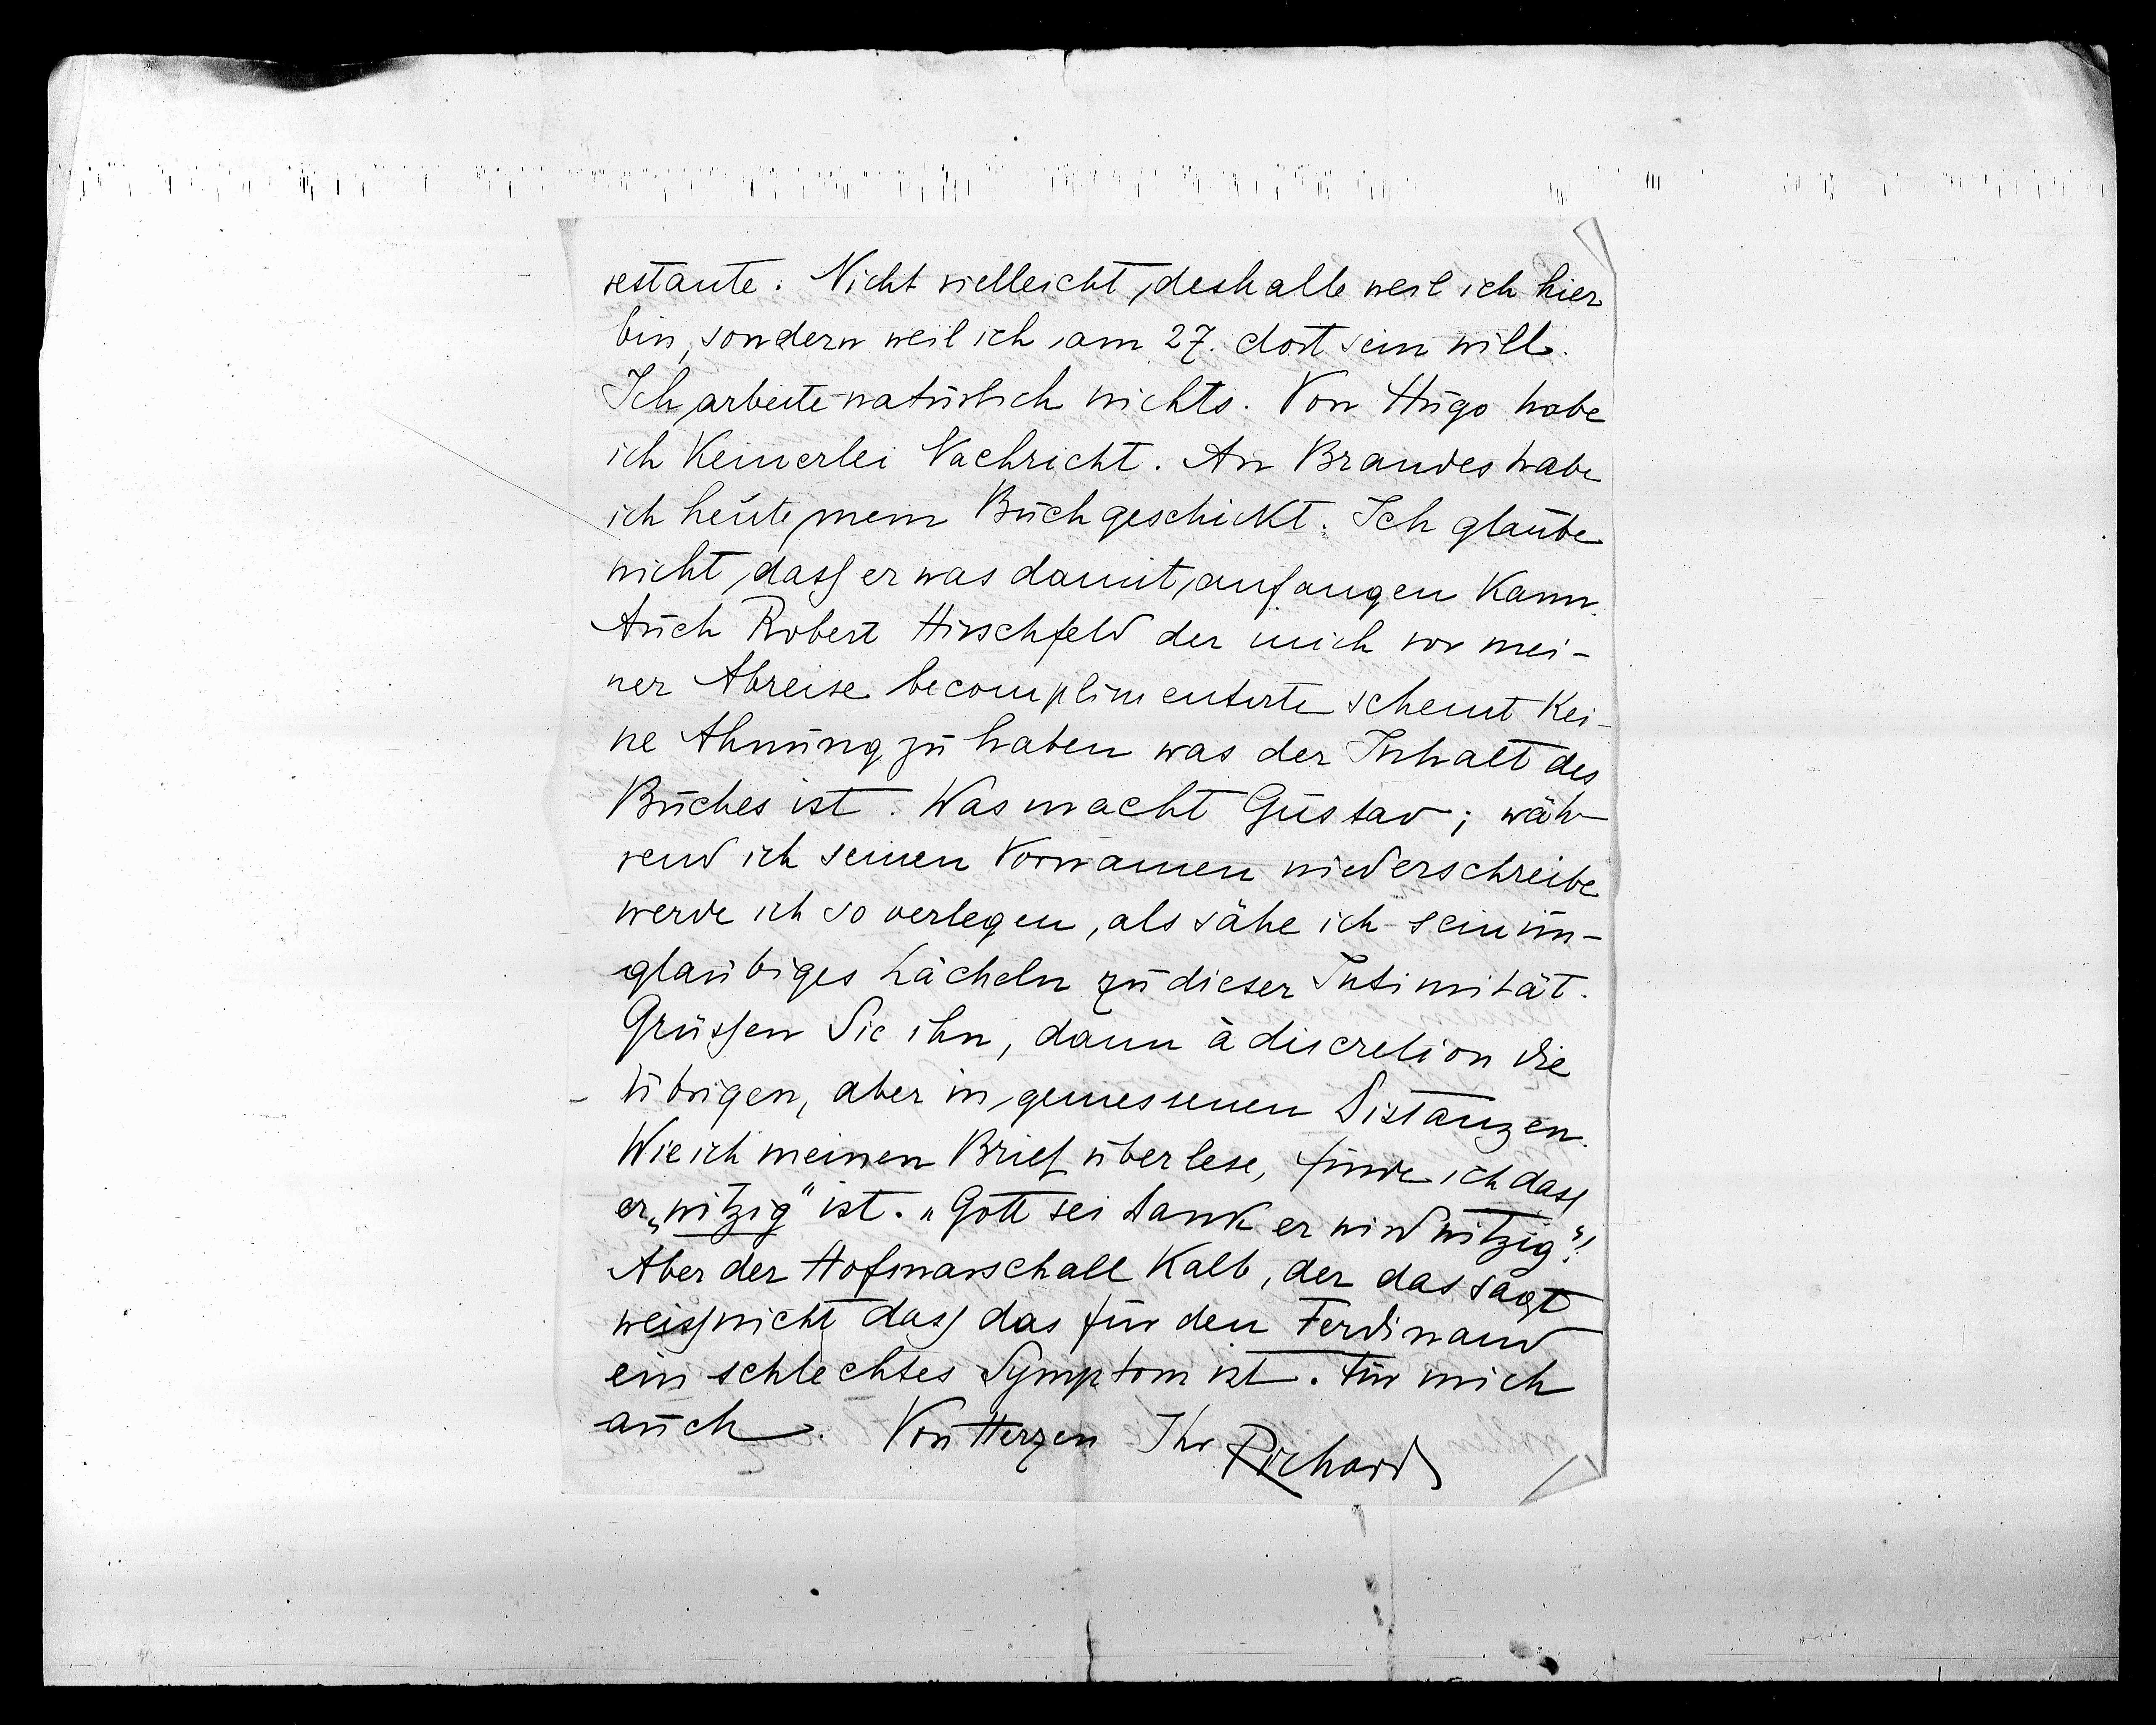 restante. Nicht vielleicht deshalb weil ich hier
bin, sondern weil ich am 27. dort sein will.
Ich arbeite natürlich nichts. Von Hugo habe
ich keinerlei Nachricht. An Brandes habe
ich heute mein Buch geschickt. Ich glaube
nicht, dass er was damit anfangen kann.
Auch Robert Hirschfeld der mich vor mei-
ner Abreise becomplimentirte scheint kei-
ne Ahnung zu haben was der Inhalt des
Buches ist. Was macht Gustav; wäh-
rend ich seinen Vornamen niederschreibe
werde ich so verlegen, als sähe ich sein un-
glaubiges Lächeln zu dieser Intimität.
Grüssen Sie ihn, dann à discretion die
Übrigen, aber in gemessenen Distanzen.
Wie ich meinen Brief überlese, finde ich dass
er „witzig" ist. „Gott sei Dank er wird witzig"!
Aber der Hofmarschall Kalb, der das sagt
weiss nicht dass das für den Ferdinand
ein schlechtes Symptom ist. Für mich
auch. Von Herzen Ihr Richard